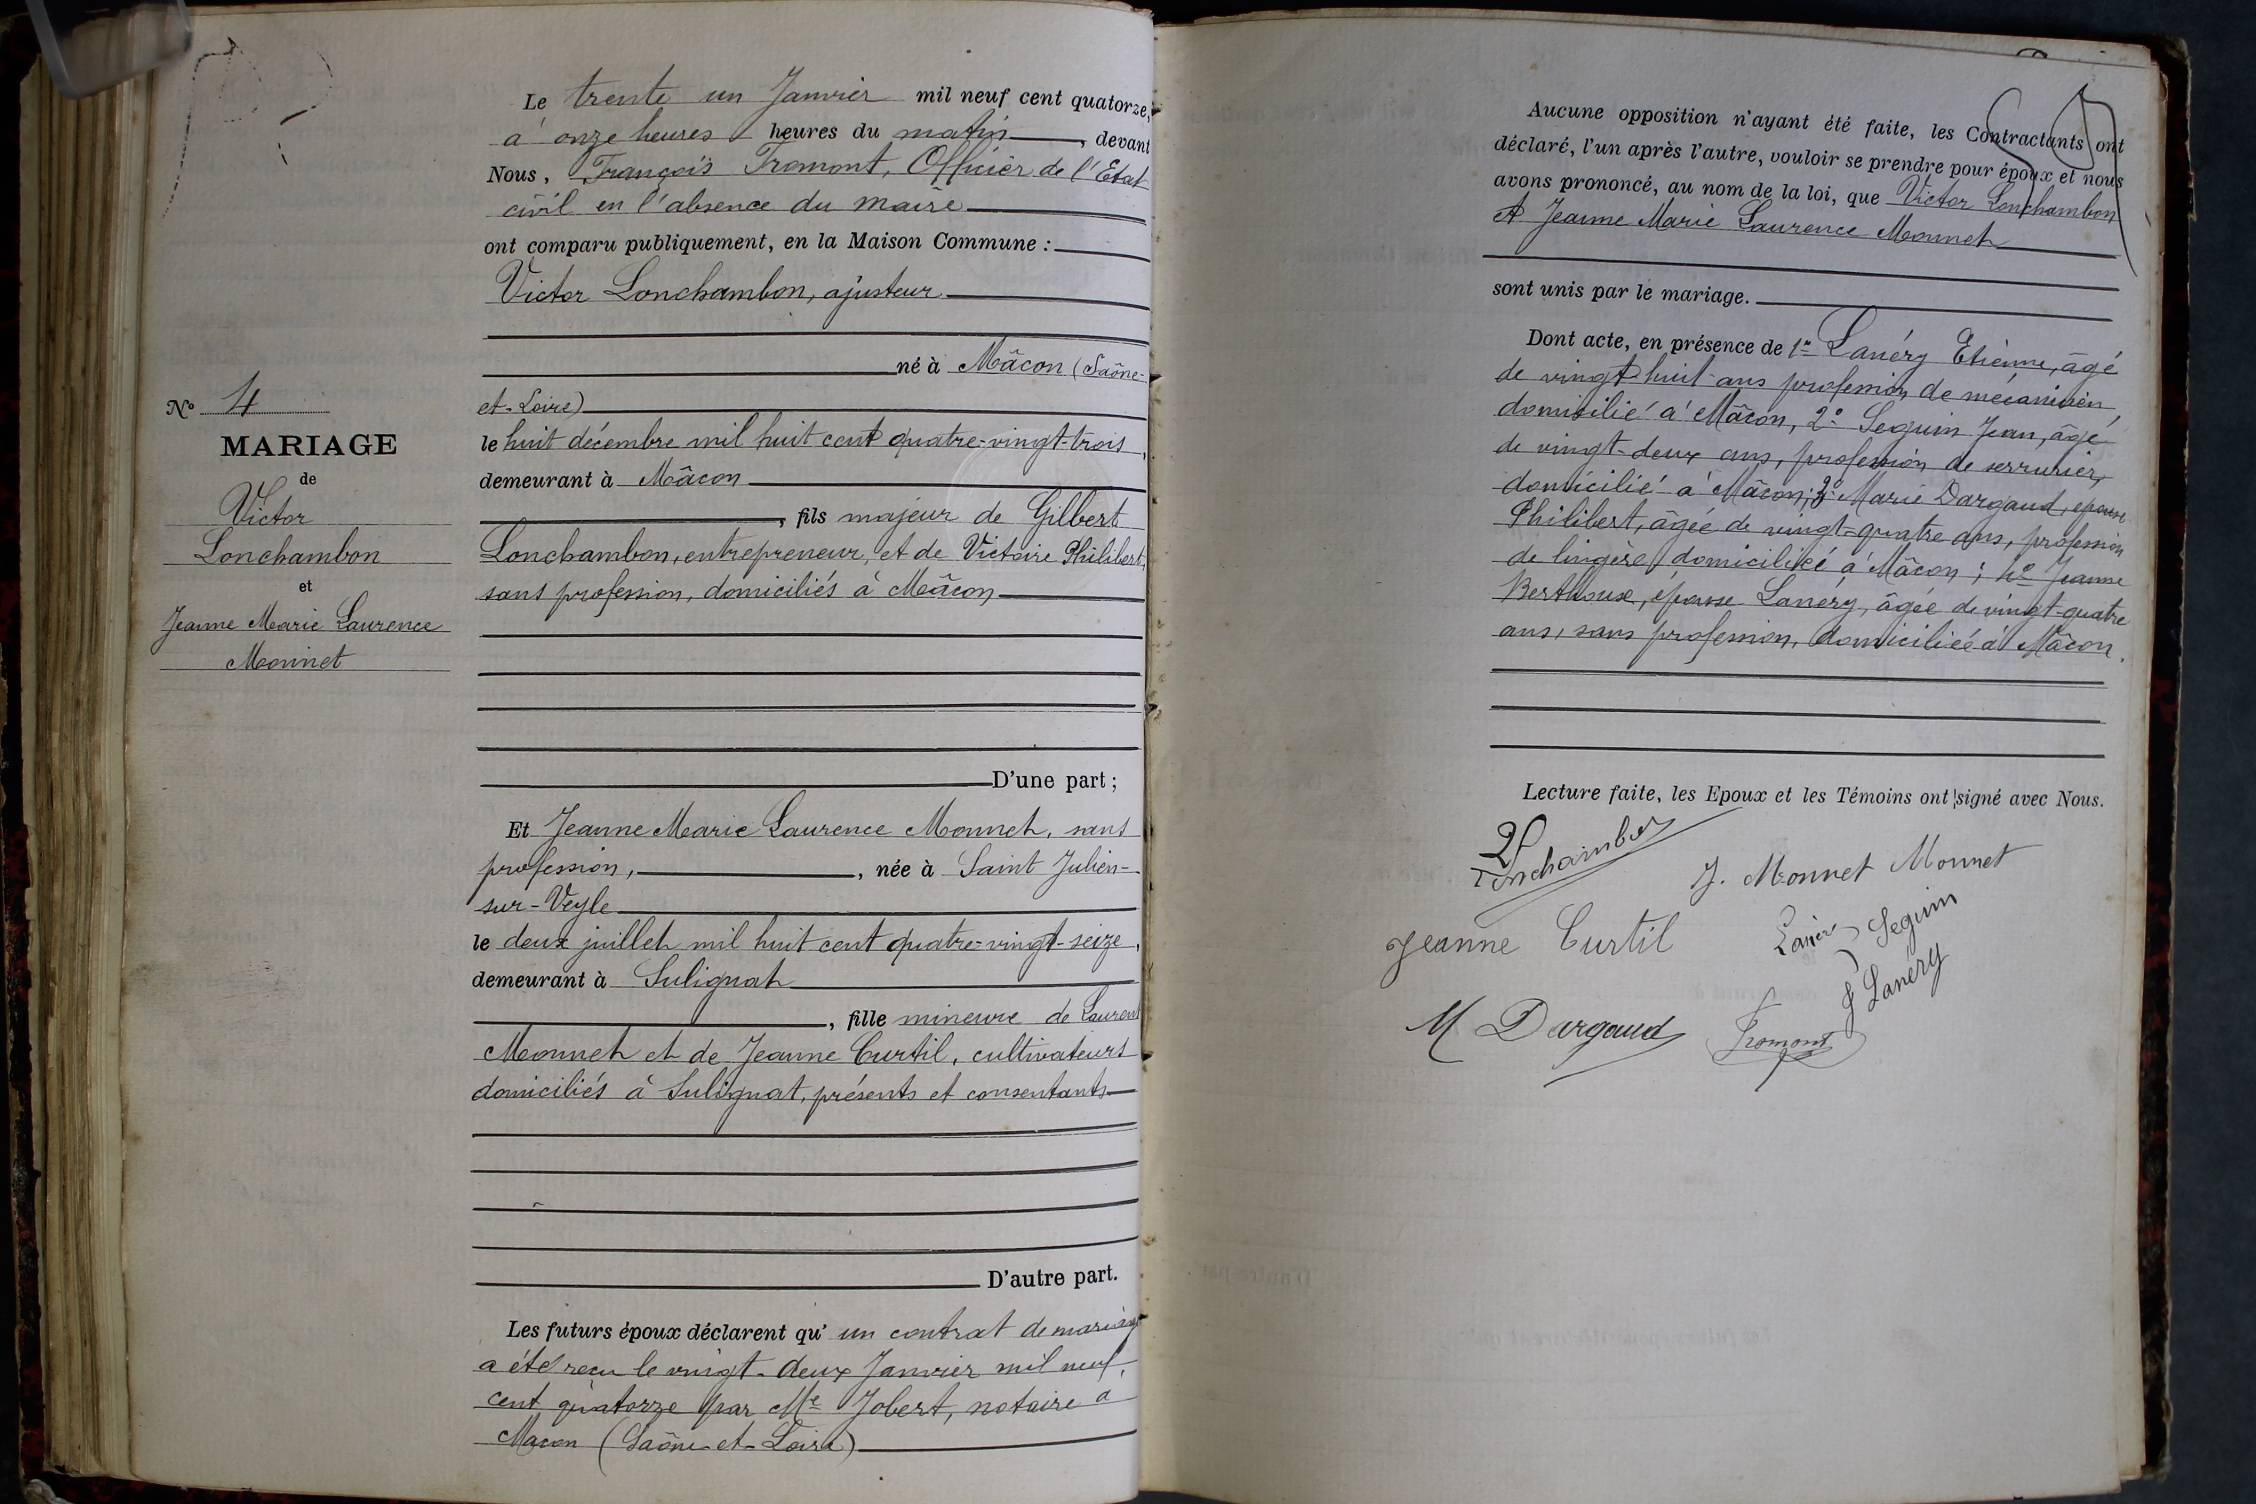 Le trente un Janvier mil neuf cent quatorze,
à onze heures heures du matin, devant
Nous, François Fromont, Officier de l'Etat
civil en l'absence du maire
ont comparu publiquement, en la Maison Commune :
Victor Lonchambon, ajusteur
né à Mâcon (Saône-
et-Loire)
le huit décembre mil huit cent quatre-vingt-trois,
demeurant à Mâcon
, fils majeur de Gilbert
Lonchambon, entrepreneur, et de Victoire Philibert,
sans profession, domiciliés à Mâcon
D'une part ;
Et Jeanne Marie Laurence Monnet, sans
profession, , née à Saint Julien-
sur-Veyle
le deux juillet mil huit cent quatre-vingt-seize,
demeurant à Sulignat
, fille mineure de Laurent
Monnet et de Jeanne Curtil, cultivateurs
domiciliés à Sulignat, présents et consentants
D'autre part.
Les futurs époux déclarent qu' un contrat de mariage
a été reçu le vingt-deux Janvier mil neuf
cent quatorze par Me Jobert, notaire à
Macon (Saône-et-Loire)
No 4
MARIAGE
de
Victor
Lonchambon
et
Jeanne Marie Laurence
Monnet
Aucune opposition n'ayant été faite, les Contractants ont
déclaré, l'un après l'autre, vouloir se prendre pour époux et nous
avons prononcé, au nom de la loi, que Victor Lonchambon
et Jeanne Marie Laurence Monnet
sont unis par le mariage.
Dont acte, en présence de 1er Lanéry Etienne, âgé
de vingt huit ans profession de mécanicien,
domicilié à Mâcon, 2o Seguin Jean, âgé
de vingt-deux ans, profession de serrurier,
domicilié à Mâcon; 3o Marie Dargaud, épouse
Philibert, âgée de vingt-quatre ans, profession
de lingère, domiciliée à Mâcon; 4o Jeanne
Berthoux, épouse Lanéry, âgée de vingt-quatre
ans, sans profession, domiciliée à Mâcon.
Lecture faite, les Epoux et les Témoins ont signé avec Nous.
Lonchambon
J. Monnet Monnet
Jeanne Curtil
Seguin
Lanéry
M Dargaud
Fromont